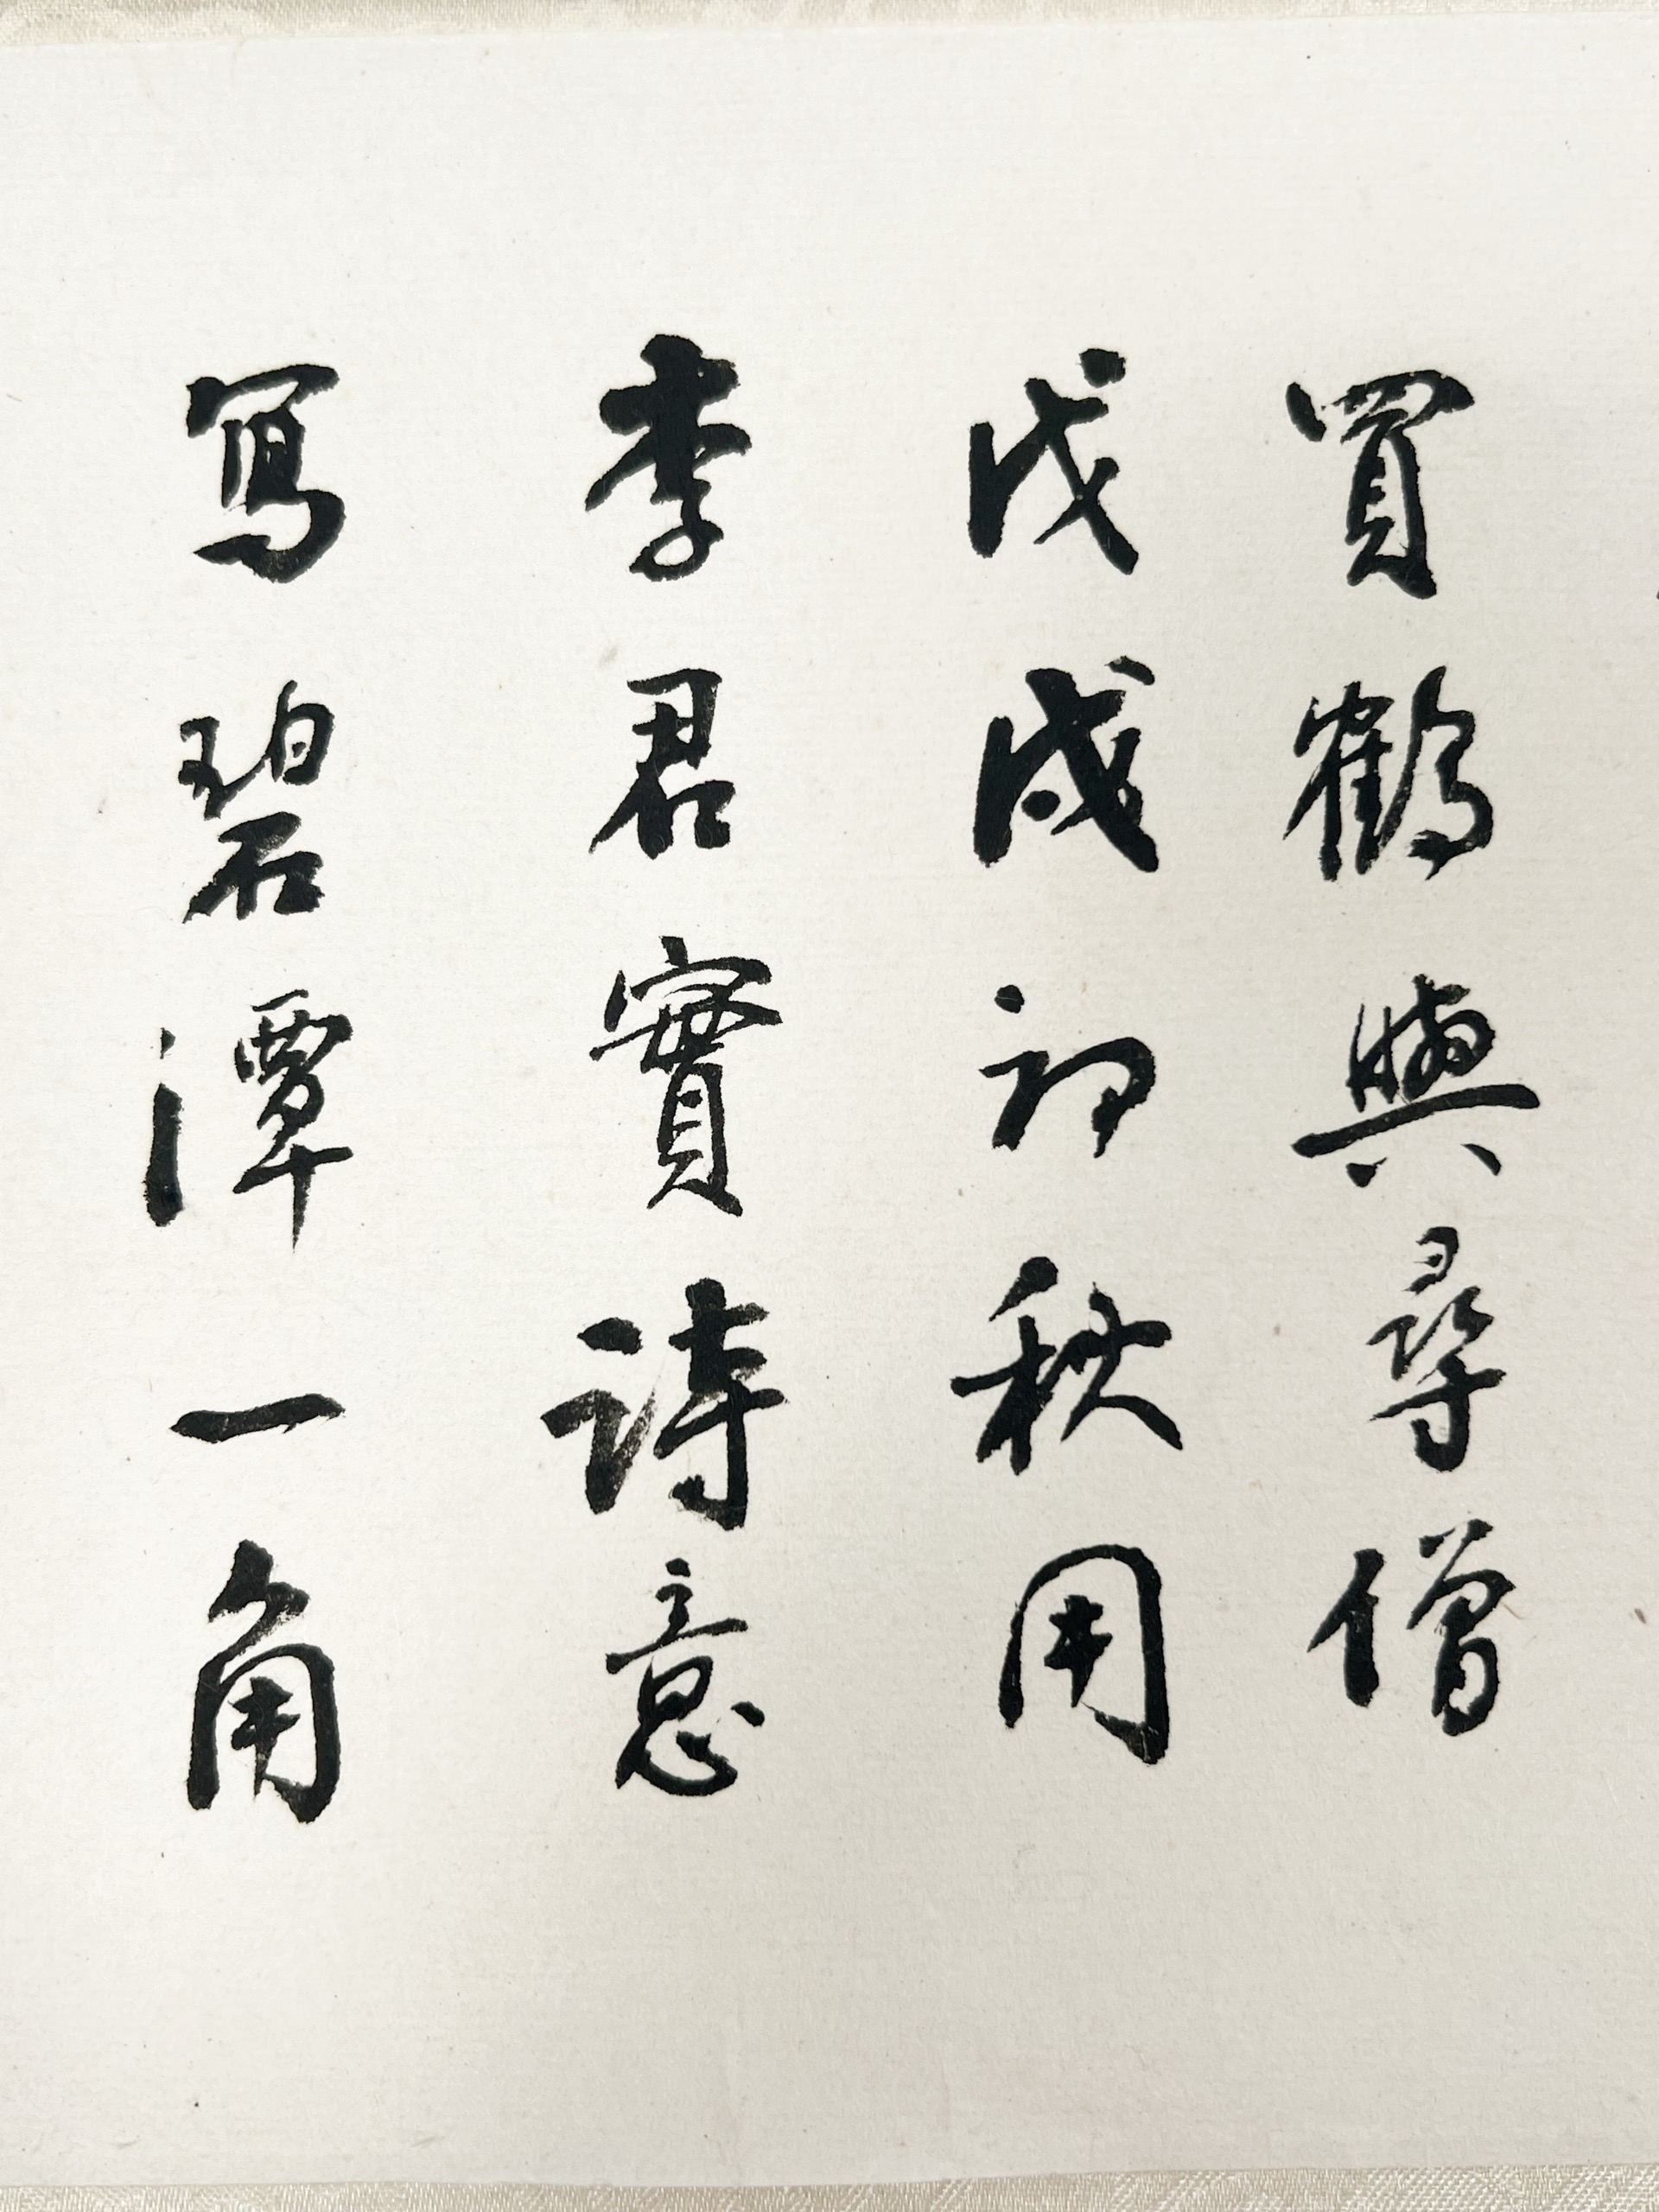 買鶴與尋僧
戊戌初秋用
李君實詩意
寫碧潭一角